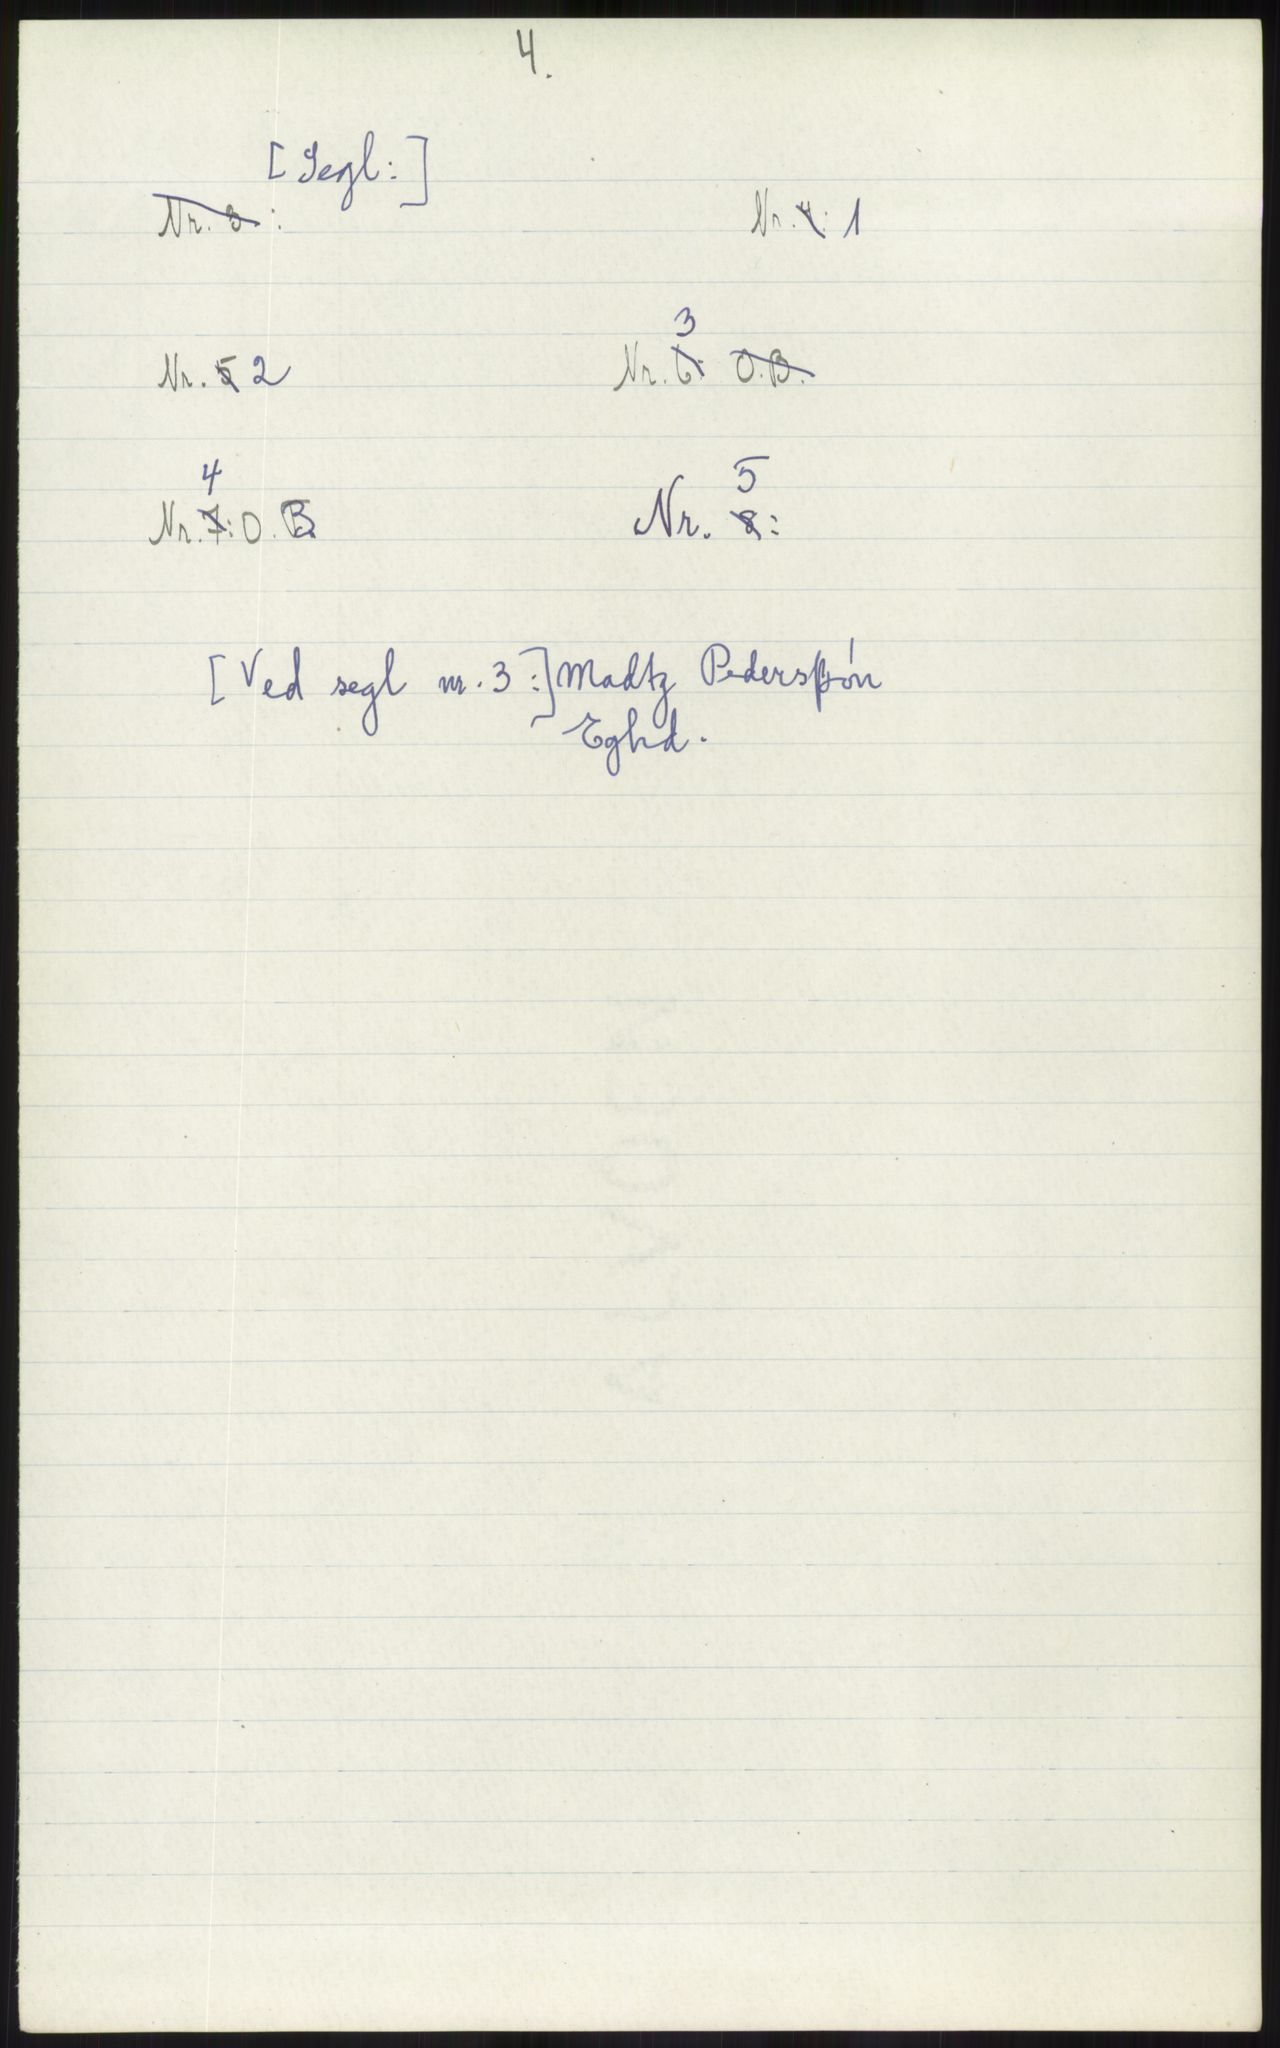 4.
[Segl:]
Nr. 3: Nr. 4: 1
3
Nr. 5 2 Nr. 6: O.B.
4 5
Nr. 7: O. B. Nr. 8:
[Ved segl nr. 3:] Madtz Pedersßøn
Eghd.